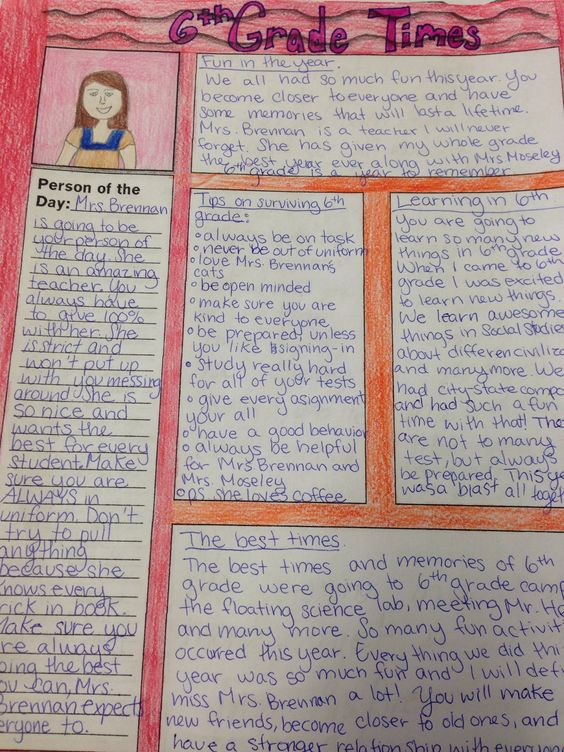 6th Grade Times
Fun in the year.
We all had so much fun this year. You
become closer to everyone and have
some memories that will last a lifetime.
Mrs. Brennan is a teacher I will never
forget. She has given my whole grade
the best year ever along with Mrs Moseley
6th grade is a year to remember
Person of the
Day: Mrs Brennan
is going to be
your person of
the day. She
is an amazing
teacher. You
always have
to give 100%
with her. She
is strict and
won't put up
with you messing
around. She is
so nice and
wants the
best for every
student. Make
sure you are
ALWAYS in
uniform. Don't
try to pull
anything
because she
knows every
trick in book.
Make sure you
are always
doing the best
you can, Mrs.
Brennan expects
everyone to.
Tips on surviving 6th
grade:
• always be on task
• never be out of uniform
• love Mrs. Brennan's
cats
• be open minded
• make sure you are
kind to everyone
• be prepared, unless
you like signing-in
• study really hard
for all of your tests
• give every asignment
your all
• have a good behavior
• always be helpful
for Mrs Brennan and
Mrs. Moseley
• ps she loves coffee
Learning in 6th
You are going to
learn so many new
things in 6th grade
When I came to 6th
grade I was excited
to learn new things.
We learn awesome
things in Social Studies
about differen civiliza
and many more. We
had city-state compe
and had such a fun
time with that! The
are not to many
test, but always
be prepared. This year
was a blast all toget
The best times.
The best times and memories of 6th
grade were going to 6th grade camp
the floating science lab, meeting Mr. He
and many more. So many fun activit
occured this year. Everything we did thi
year was so much fun and I will defi
miss Mrs. Brennan a lot! You will make
new friends, become closer to old ones, and
have a stronger relationship with everyone